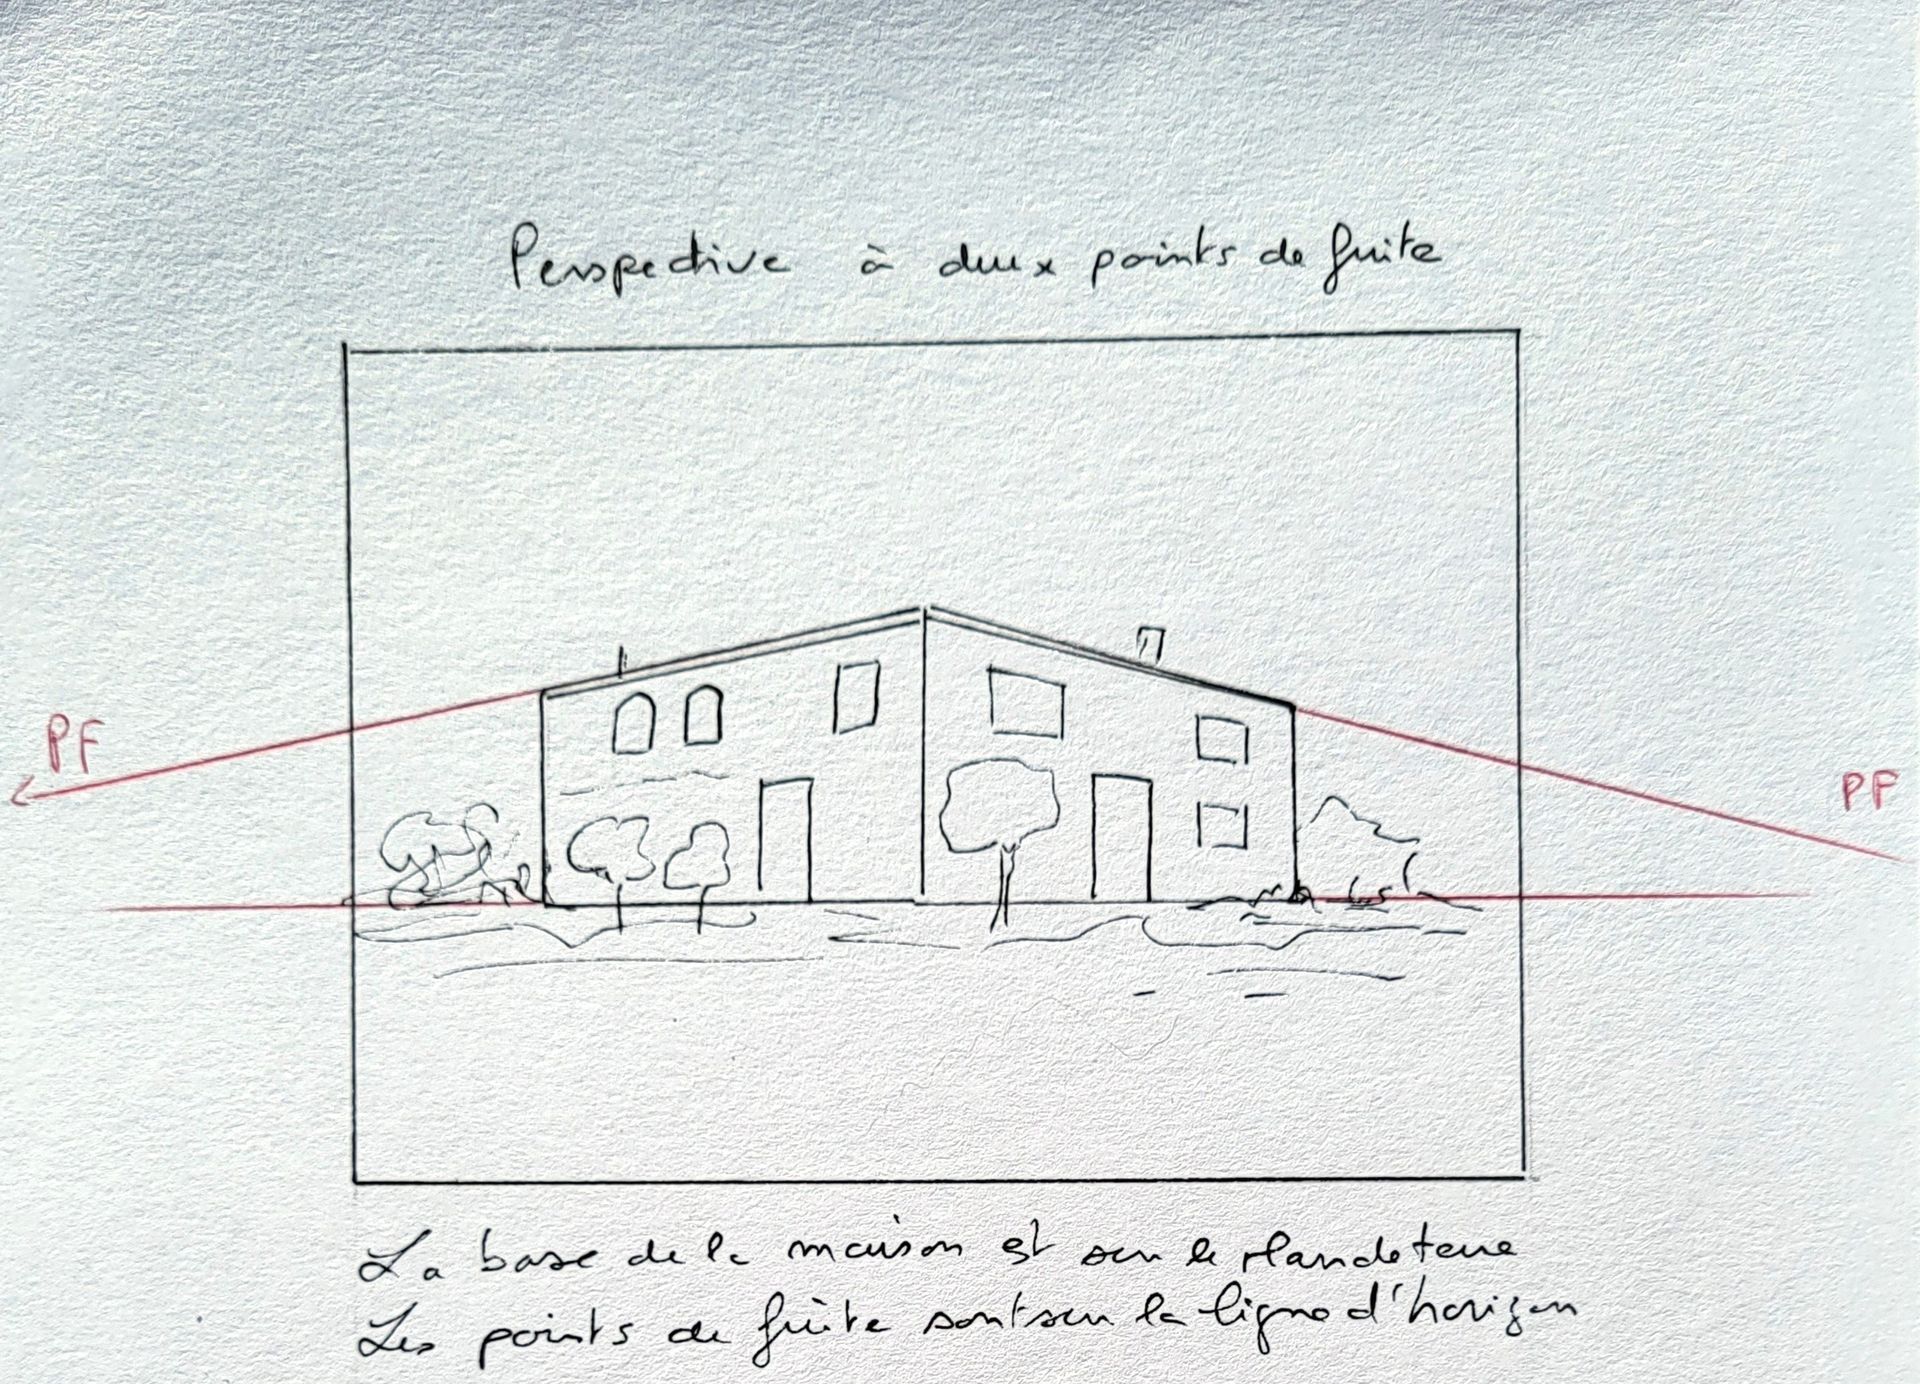 Perspective à deux points de fuite
PF
PF
La base de la maison est sur le plan de terre
Les points de fuite sont sur la ligne d'horizon